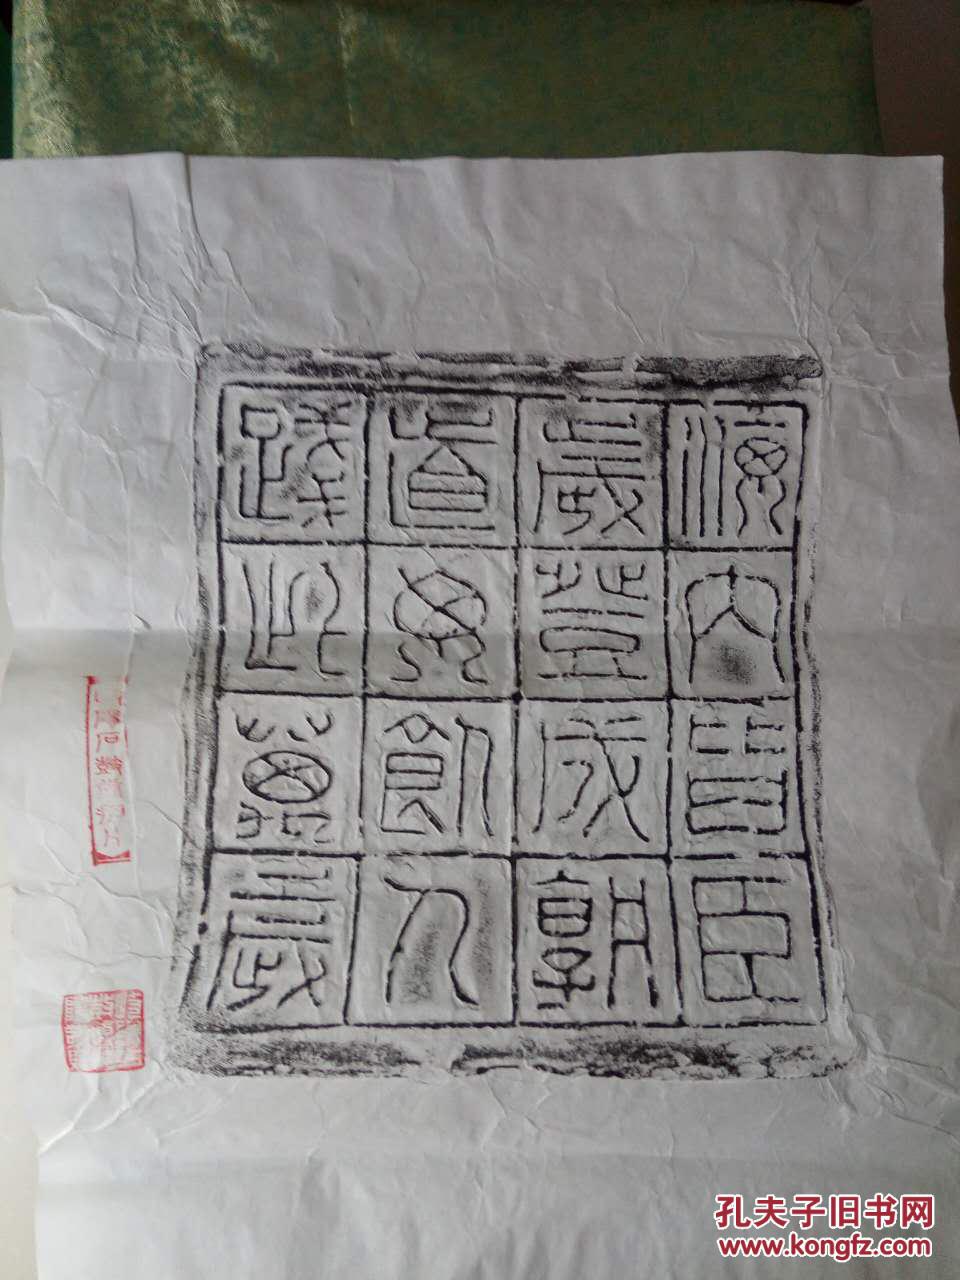 海内皆臣
歲登成孰
道毋飢人
踐此萬歲
孔夫子旧书网
www.kongfz.com